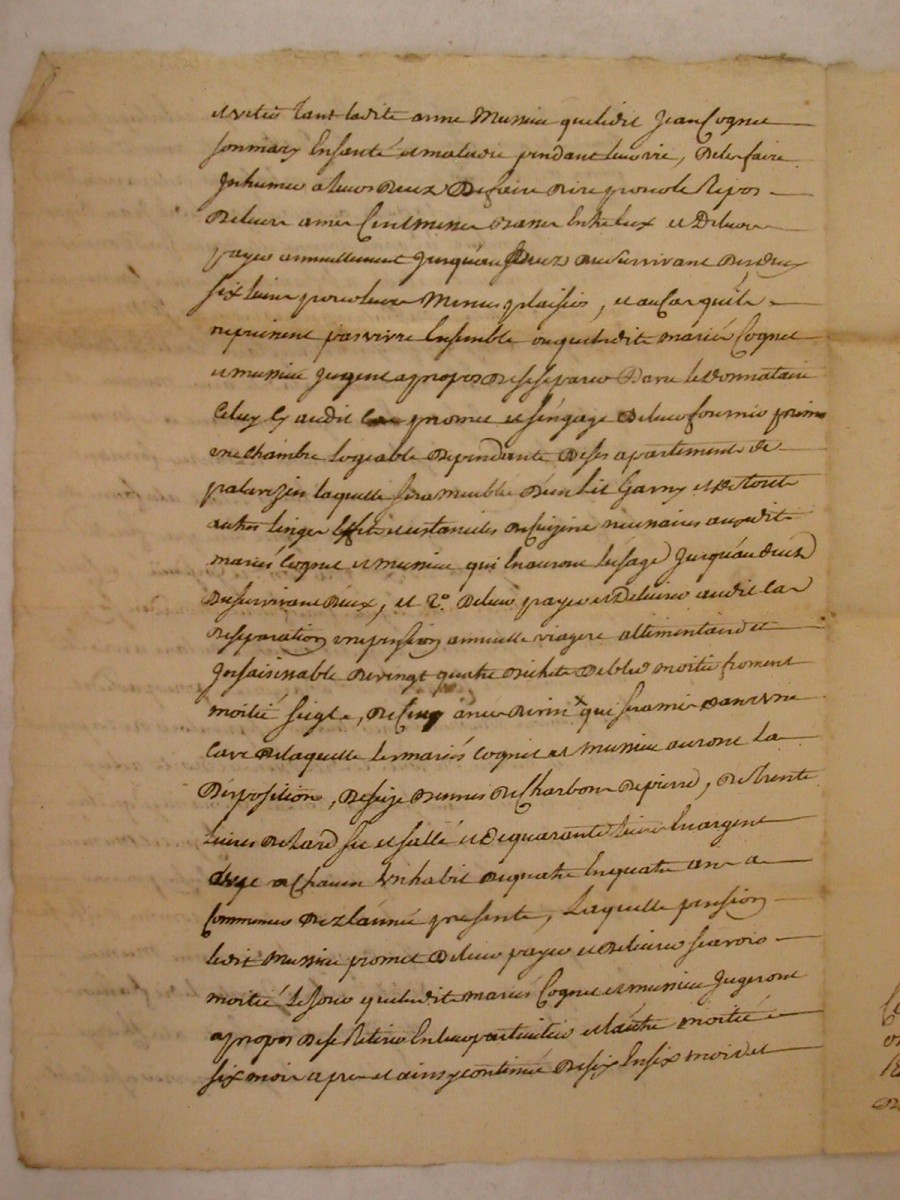 et vetir tant ladite anne Mussieu que ledit Jean Cognet
son mary En santé et maladie pendant leur vie, De les faire
Inhumer a leurs Deux De faire Dire pour le Repos
De leurs ames Cent messes Dans entre Eux et De leur
payer annuellement Jusqu'au Deuz Du survivant Des deux
six livres pour leurs Menus plaisirs, et au Cas qu'ils
ne puissent pas vivre Ensemble ou que lesdits mariés Cognet
et mussieu Jugent apropos De se separer D'avec le Donnataire
Celuy cy audit Cas promet et s'engage De leur fournir
une chambre Logeable Dependante De ses apartements de
palavezin laquelle sera meublée D'un Lit Garny et De toute
autres linges Effets et ustancilles De Cuizine necessaires auxdits
mariés Cognet et mussieu qui En auront L'usage Jusqu'au decès
Du survivant D'eux, et 2º. De leur payer et Delivrer audit Cas
De separation une pension annuelle viagere allimentaire et
Insaisissable De vingt quatre Bichets De bled moitié froment
moitié seigle, De Cinq anées De vin x qui sera mis Dans une
Cave De laquelle Les mariés Cognet et Mussieu auront La
Disposition, De seize Bennes De Charbon De pierre, De trente
Livres De Lard sec et sallé et De quarante Livres En argent
a Chacun Un habit De quatre En quatre ans a
Commencer Dez L'année presente, Laquelle pension
ledit Mussieu promet De leur payer et Delivrer scavoir
moitié Le Jour que lesdits mariés Cognet et mussieu Jugeront
apropos De se Retirer En leur particulier et L'autre moitié
six mois apres et ainsy continuer De six En six mois et